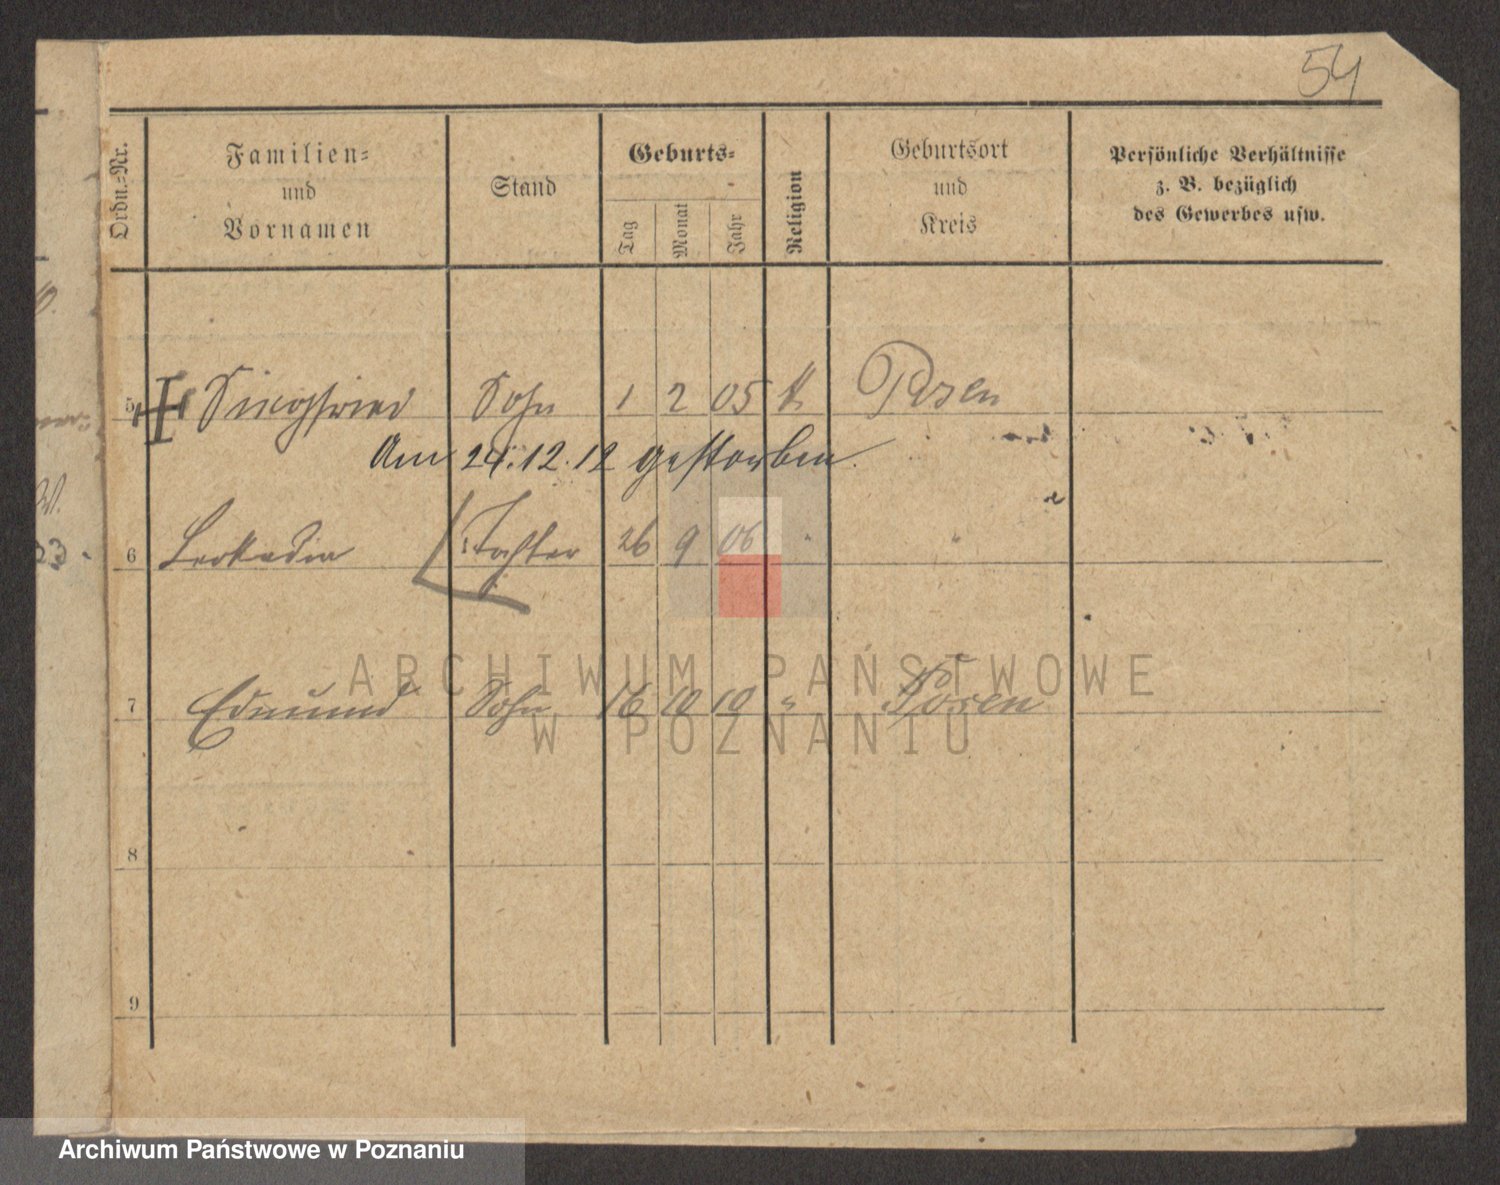 54
Ordn.-Nr.
Familien-
und
Vornamen
Stand
Geburts-
Tag
Monat
Jahr
Religion
Geburtsort
und
Kreis
Persönliche Verhältnisse
z. B. bezüglich
des Gewerbes usw.
5 Siegfried Sohn 1 2 05 k. Posen
Am 24.12.12 gestorben.
6 Leokadia Tochter 26 9 06 " "
7 Edmund Sohn 16 10 10 " Posen
8
9
ARCHIWUM PAŃSTWOWE
W POZNANIU
Archiwum Państwowe w Poznaniu